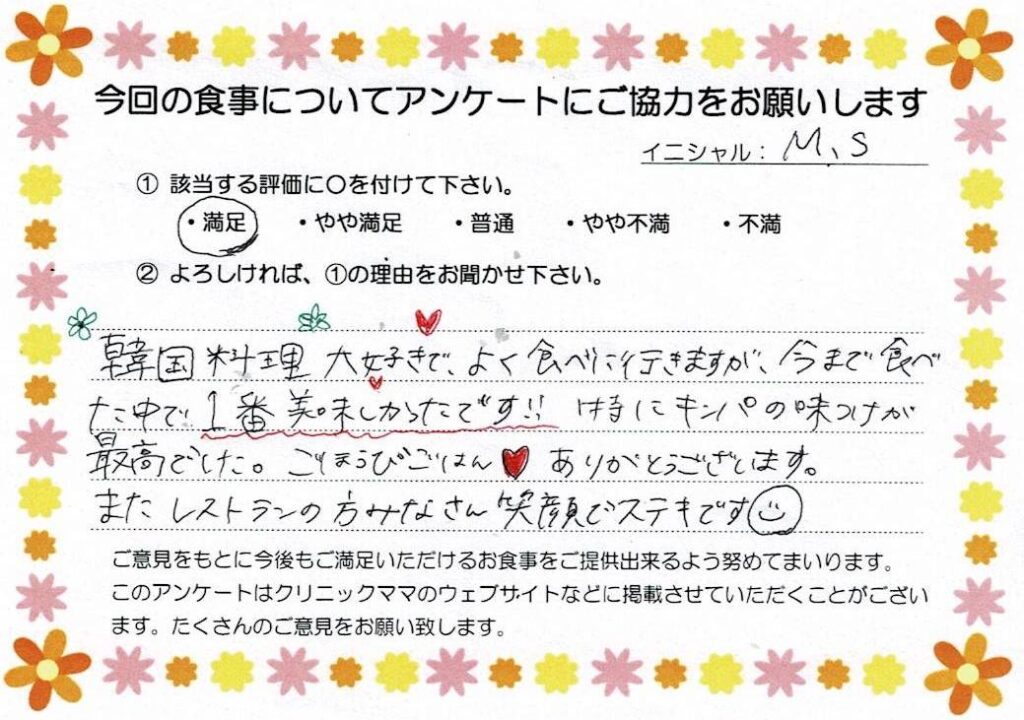 今回の食事についてアンケートにご協力をお願いします
イニシャル： M、S
① 該当する評価に〇を付けて下さい。
・満足 ・やや満足 ・普通 ・やや不満 ・不満
② よろしければ、①の理由をお聞かせ下さい。
韓国料理 大好きで、よく食べに行きますが、今まで食べ
た中で1番美味しかったです!! 特にキンパの味つけが
最高でした。ごほうびごはん♥ありがとうございます。
またレストランの方みなさん笑顔でステキです☺
ご意見をもとに今後もご満足いただけるお食事をご提供出来るよう努めてまいります。
このアンケートはクリニックママのウェブサイトなどに掲載させていただくことがござい
ます。たくさんのご意見をお願い致します。